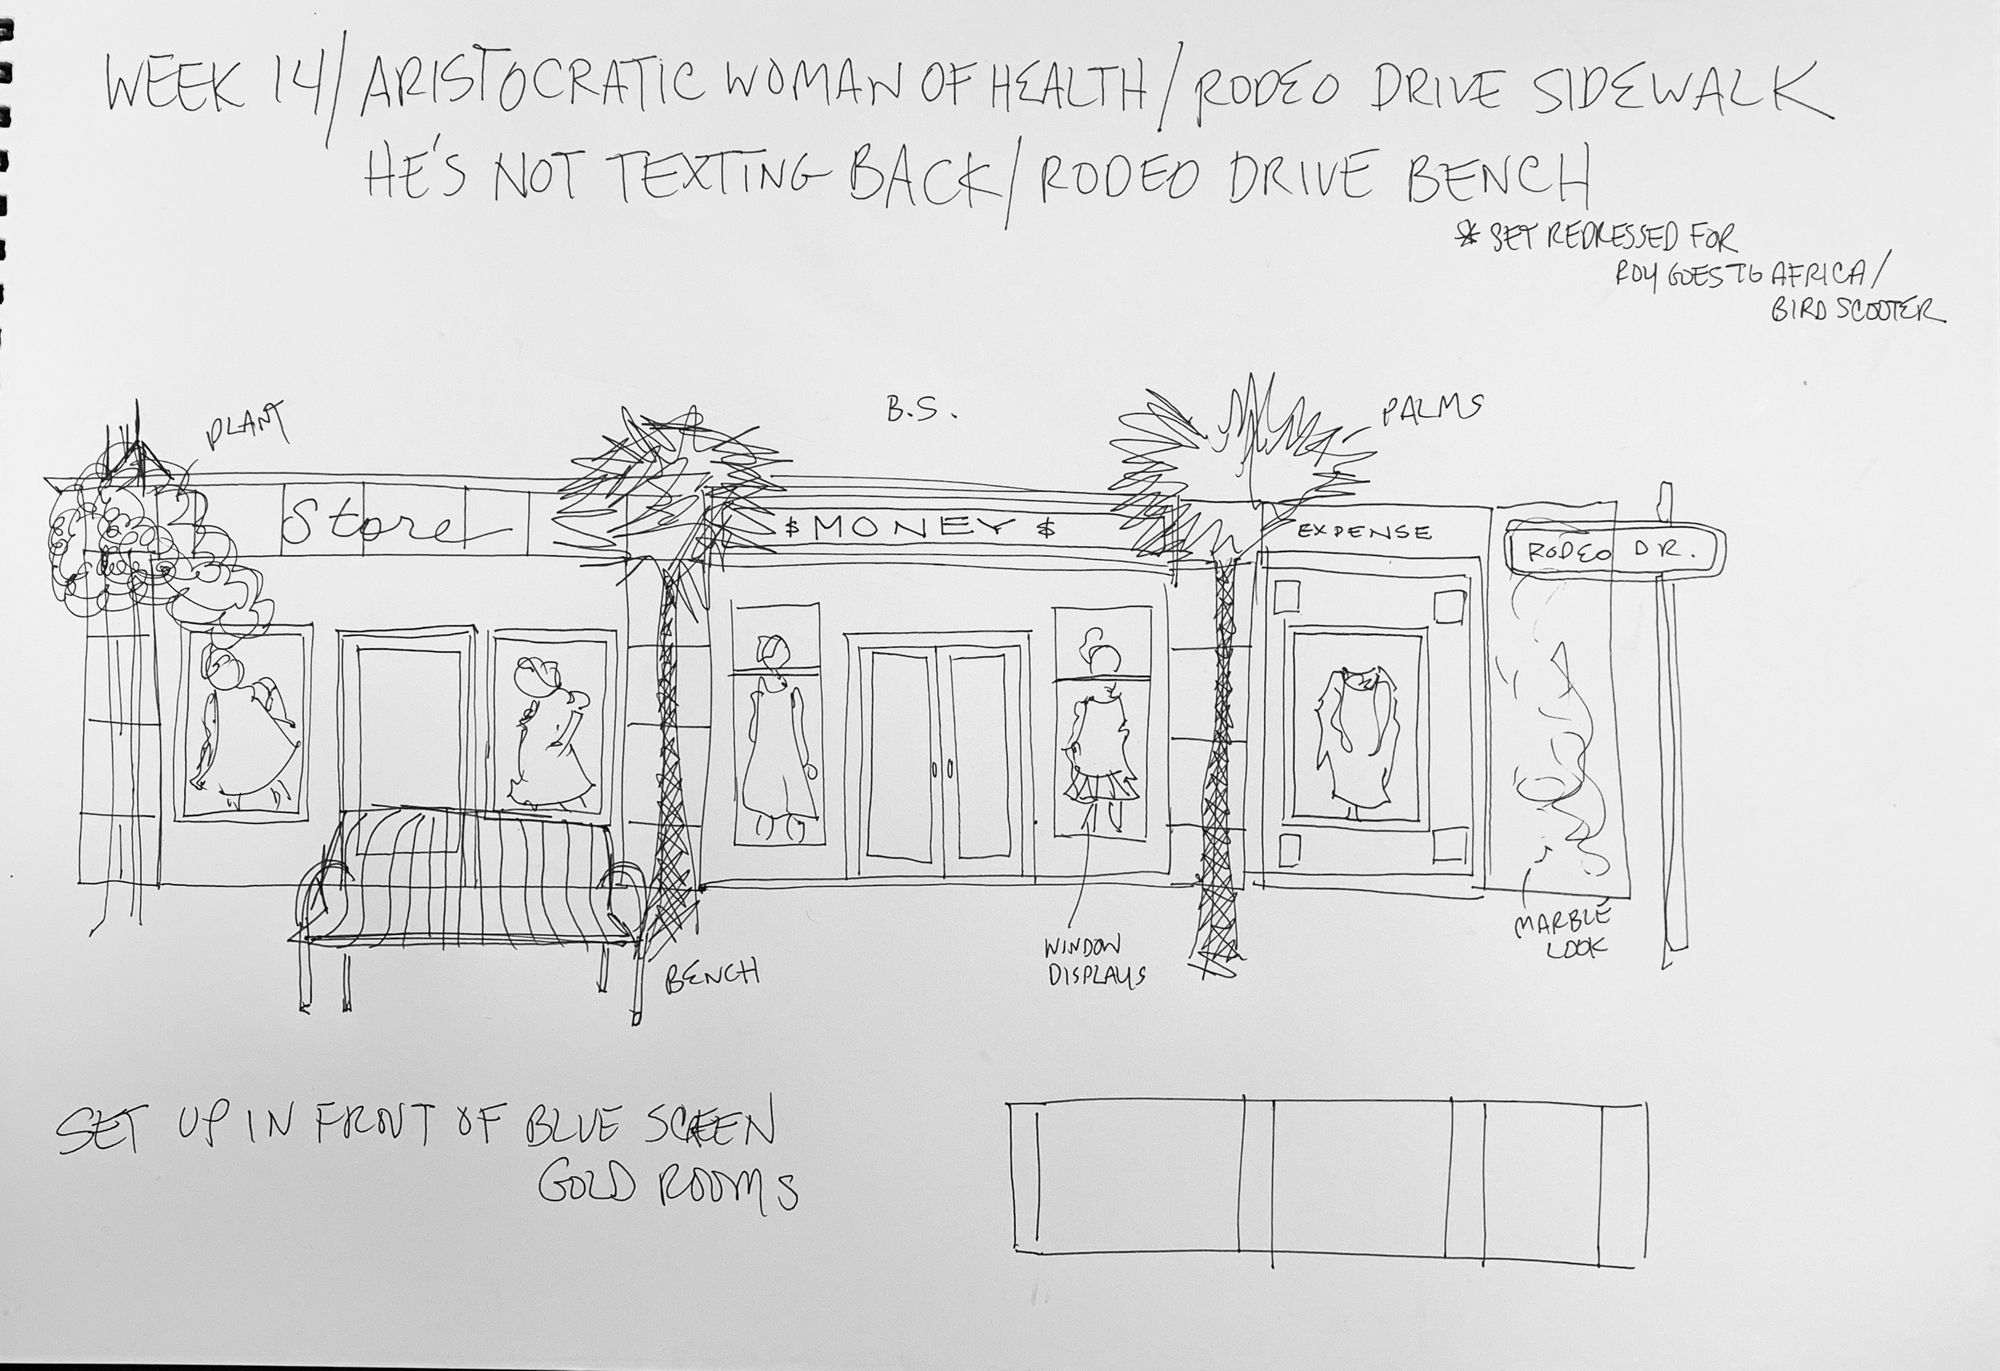 WEEK 14/ARISTOCRATIC WOMAN OF HEALTH/RODEO DRIVE SIDEWALK
HE'S NOT TEXTING BACK/RODEO DRIVE BENCH
* SET REDRESSED FOR
ROY GOES TO AFRICA/
BIRD SCOOTER
PLANT
B.S.
PALMS
Store
$ MONEY $
EXPENSE
RODEO DR.
BENCH
WINDOW
DISPLAYS
MARBLE
LOOK
SET UP IN FRONT OF BLUE SCREEN
GOLD ROOMS